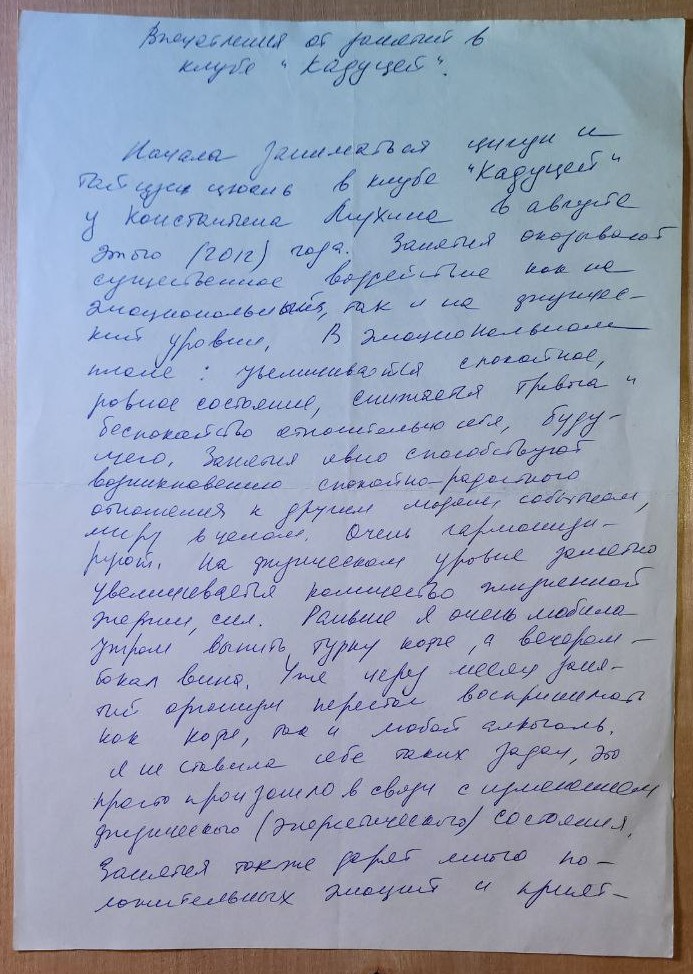 Впечатления от занятий в
клубе "Кадуцей".
Начала заниматься цигун и
тайцзи цюань в клубе "Кадуцей"
у Константина Мухина в августе
этого (2012) года. Занятия оказывают
существенное воздействие как на
эмоциональный, так и на физичес-
кий уровни. В эмоциональном
плане: увеличивается спокойное,
ровное состояние, снижается тревога и
беспокойство относительно себя, буду-
щего. Занятия явно способствуют
возникновению спокойно-радостного
отношения к другим людям, событиям,
миру в целом. Очень гармонизи-
руют. На физическом уровне заметно
увеличивается количество жизненной
энергии, сил. Раньше я очень любила
утром выпить турку кофе, а вечером -
бокал вина. Уже через месяц заня-
тий организм перестал воспринимать
как кофе, так и любой алкоголь.
Я не ставила себе таких задач, это
просто произошло в связи с изменением
физического (энергетического) состояния.
Занятия также дарят много по-
ложительных эмоций и прият-